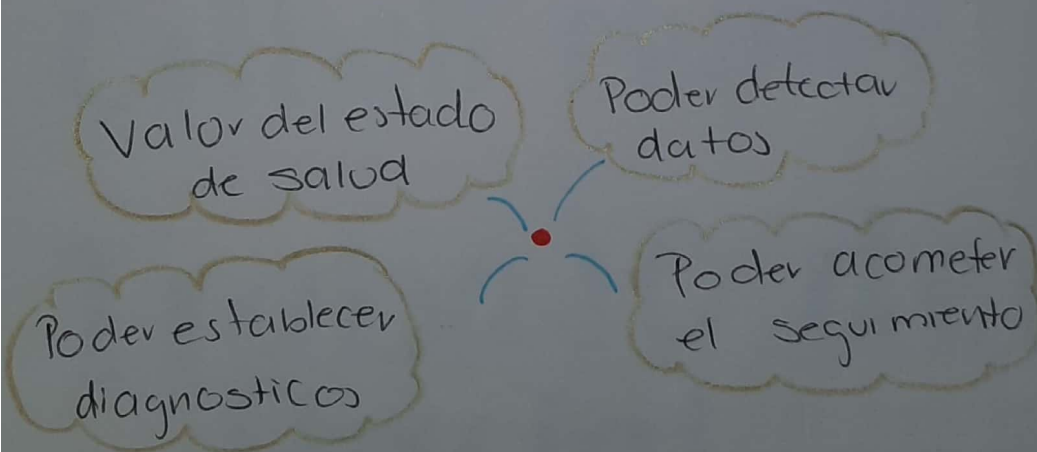 Valor del estado
de salud
Poder detectar
datos
Poder establecer
diagnosticos
Poder acometer
el seguimiento